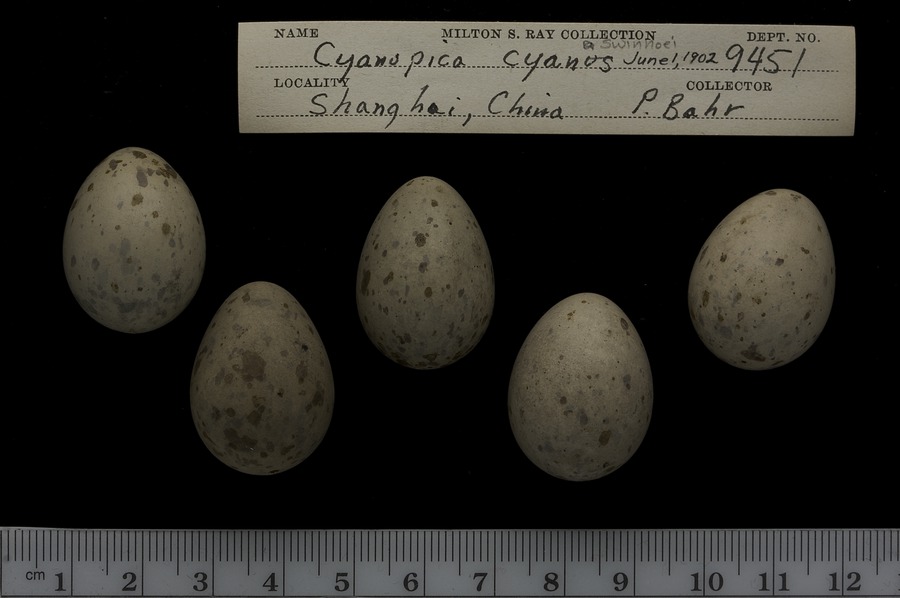 NAME MILTON S. RAY COLLECTION DEPT. NO.
swinhoei
Cyanopica cyanus June 1, 1902 9451
LOCALITY COLLECTOR
Shanghai, China P. Bahr
cm 1 2 3 4 5 6 7 8 9 10 11 12